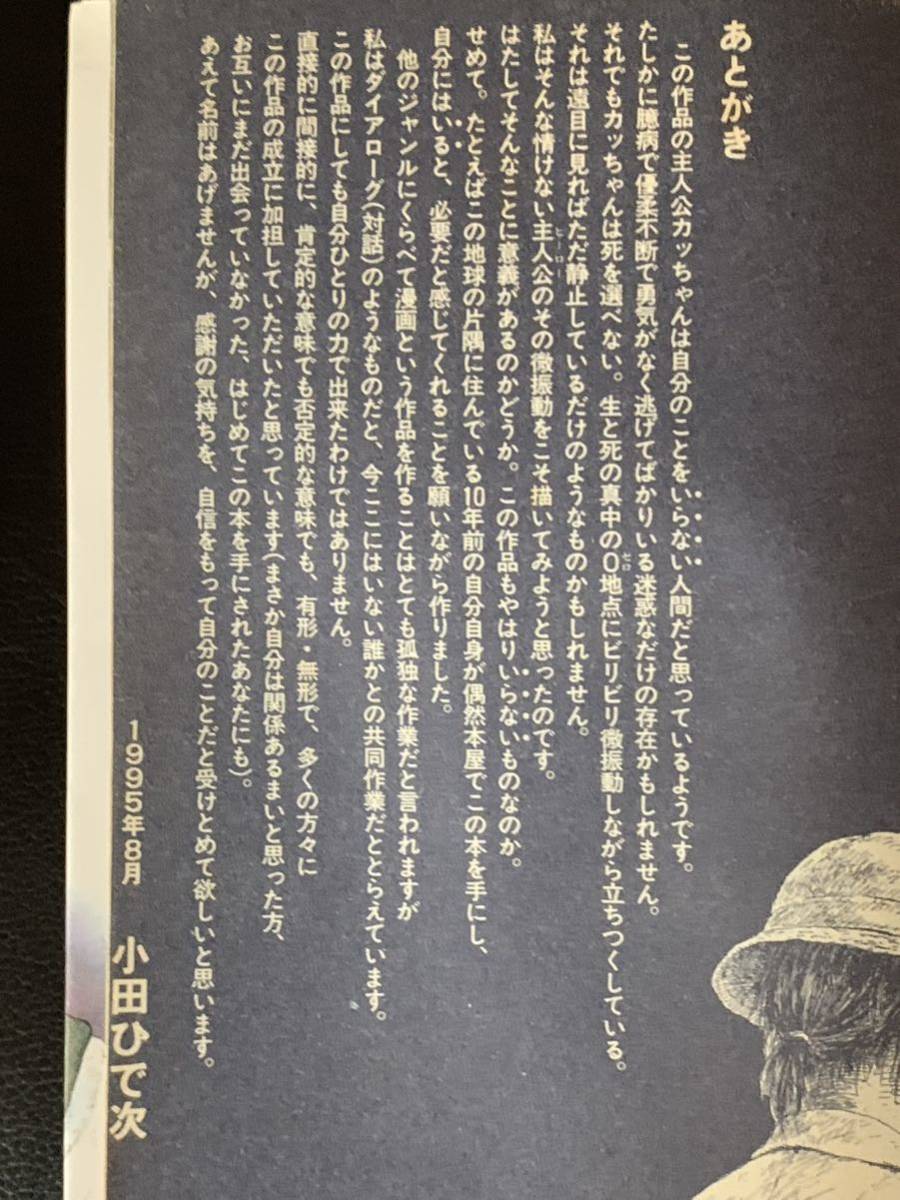 あとがき
この作品の主人公カッちゃんは自分のことをいらない人間だと思っているようです。
たしかに臆病で優柔不断で勇気がなく逃げてばかりいる迷惑なだけの存在かもしれません。
それでもカッちゃんは死を選べない。生と死の真中の0地点にビリビリ微振動しながら立ちつくしている。
ゼロ
それは遠目に見ればただ静止しているだけのようなものかもしれません。
私はそんな情けない主人公のその微振動をこそ描いてみようと思ったのです。
ヒーロー
はたしてそんなことに意義があるのかどうか。この作品もやはりいらないものなのか。
せめて。たとえばこの地球の片隅に住んでいる10年前の自分自身が偶然本屋でこの本を手にし、
自分にはいると、必要だと感じてくれることを願いながら作りました。
他のジャンルにくらべて漫画という作品を作ることはとても孤独な作業だと言われますが
私はダイアローグ(対話)のようなものだと、今ここにはいない誰かとの共同作業だととらえています。
この作品にしても自分ひとりの力で出来たわけではありません。
直接的に間接的に、肯定的な意味でも否定的な意味でも、有形・無形で、多くの方々に
この作品の成立に加担していただいたと思っています(まさか自分は関係あるまいと思った方、
お互いにまだ出会っていなかった、はじめてこの本を手にされたあなたにも)。
あえて名前はあげませんが、感謝の気持ちを、自信をもって自分のことだと受けとめて欲しいと思います。
1995年8月 小田ひで次